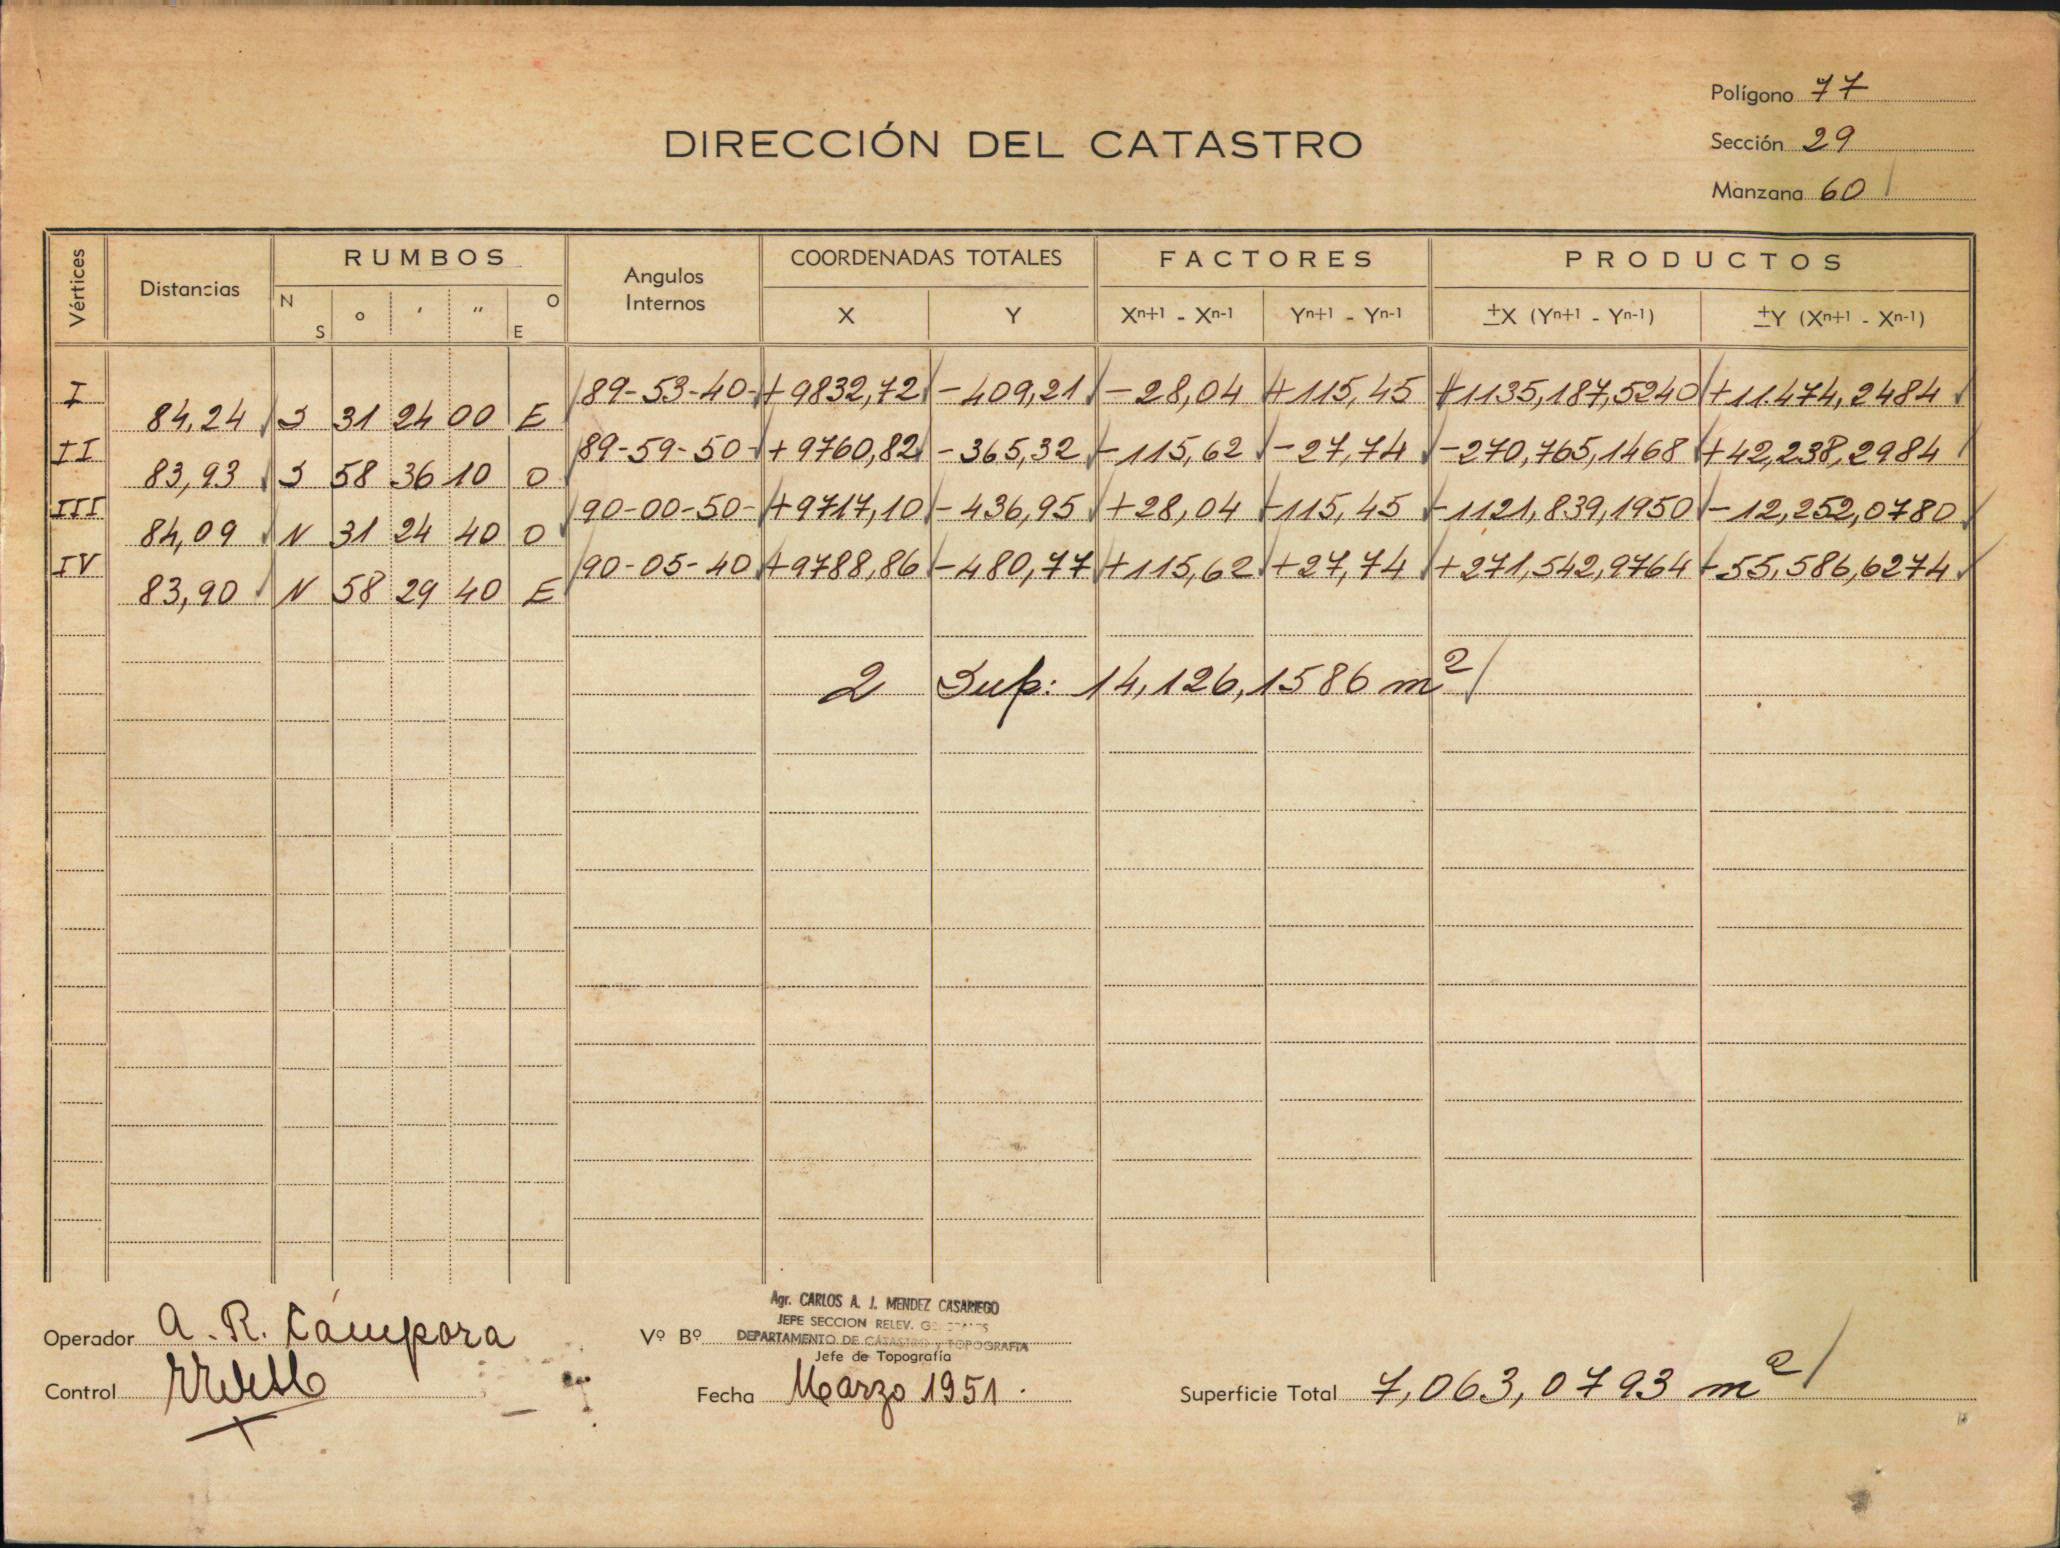 Polígono 77
DIRECCIÓN DEL CATASTRO
Sección 29
Manzana 60
Vértices Distancias RUMBOS Angulos Internos COORDENADAS TOTALES FACTORES PRODUCTOS
N S o ' '' O E X Y Xn+1 - Xn-1 Yn+1 - Yn-1 ±X (Yn+1 - Yn-1) ±Y (Xn+1 - Xn-1)
I 89-53-40- +9832,72 -409,21 -28,04 +115,45 +1135,187,5240 +11.474,2484
84,24 S 31 24 00 E
II 89-59-50- +9760,82 -365,32 -115,62 -27,74 -270,765,1468 +42,238,2984
83,93 S 58 36 10 O
III 90-00-50- +9717,10 -436,95 +28,04 -115,45 -1121,839,1950 -12,252,0780
84,09 N 31 24 40 O
IV 90-05-40 +9788,86 -480,77 +115,62 +27,74 +271,542,9764 -55,586,6274
83,90 N 58 29 40 E
2 Sup: 14,126,1586 m2
Agr. CARLOS A. J. MENDEZ CASARIEGO
JEFE SECCION RELEV.
Operador A. R. Cámpora Vº Bº DEPARTAMENTO DE CATASTRO y TOPOGRAFIA
Jefe de Topografía
Control Fecha Marzo 1951. Superficie Total 7,063,0793 m2